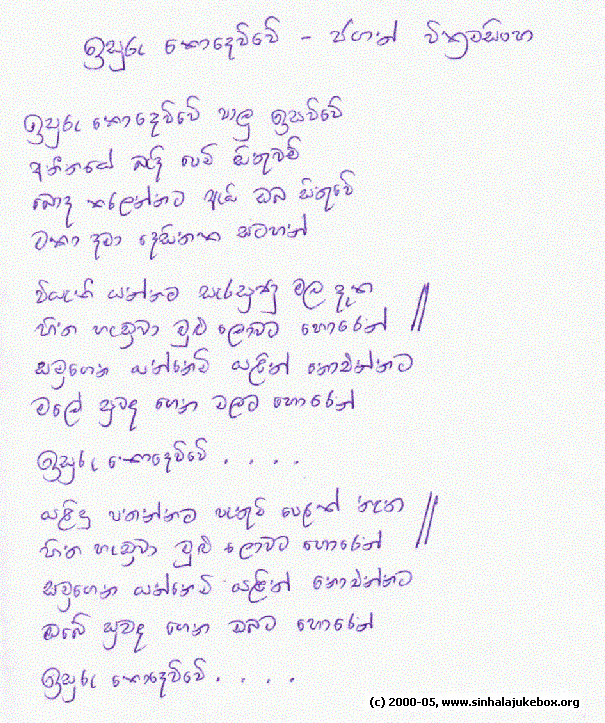 ඉසුරු නොදෙව්වේ - ජගත් වික්‍රමසිංහ
ඉසුරු නොදෙව්වේ පාලු ඉසව්වේ
අතීතයේ බැදි පෙම් සිතුවම්
බොඳ කරලන්නට ඇයි ඔබ සිතුවේ
මකා දමා දෙසිතක සටහන්
වියැකී යන්නට සැරසුනු මල දැක //
හිත හැඬුවා මුළු ලොවට හොරෙන්
සමුගෙන යන්නෙමි යළිත් නොඑන්නට
මලේ සුවඳ ගෙන මලට හොරෙන්
ඉසුරු නොදෙව්වේ . . . .
යළිදු පතන්නට පැතුම් පෙළක් නැත //
හිත හැඬුවා මුළු ලොවට හොරෙන්
සමුගෙන යන්නෙමි යළිත් නොඑන්නට
ඔබේ සුවඳ ගෙන ඔබට හොරෙන්
ඉසුරු නොදෙව්වේ . . . .
(c) 2000-05, www.sinhalajukebox.org